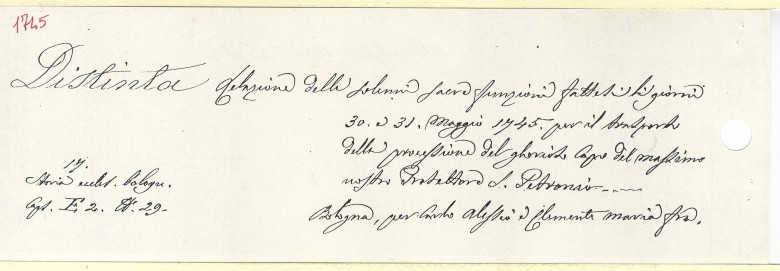 1745
Distinta Relazione delle solenni sacre funzioni fatte li giorni
30. e 31. Maggio 1745. per il trasporto
della processione del glorioso Capo del massimo
nostro Protettore S. Petronio
17.
Storia eccles. bologn.
Cap. E. 2. N. 29.
Bologna, per Carlo Alessio e Clemente Maria fra.